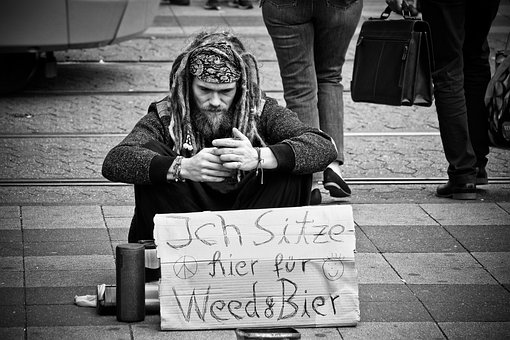 Ich Sitze
hier für
Weed&Bier